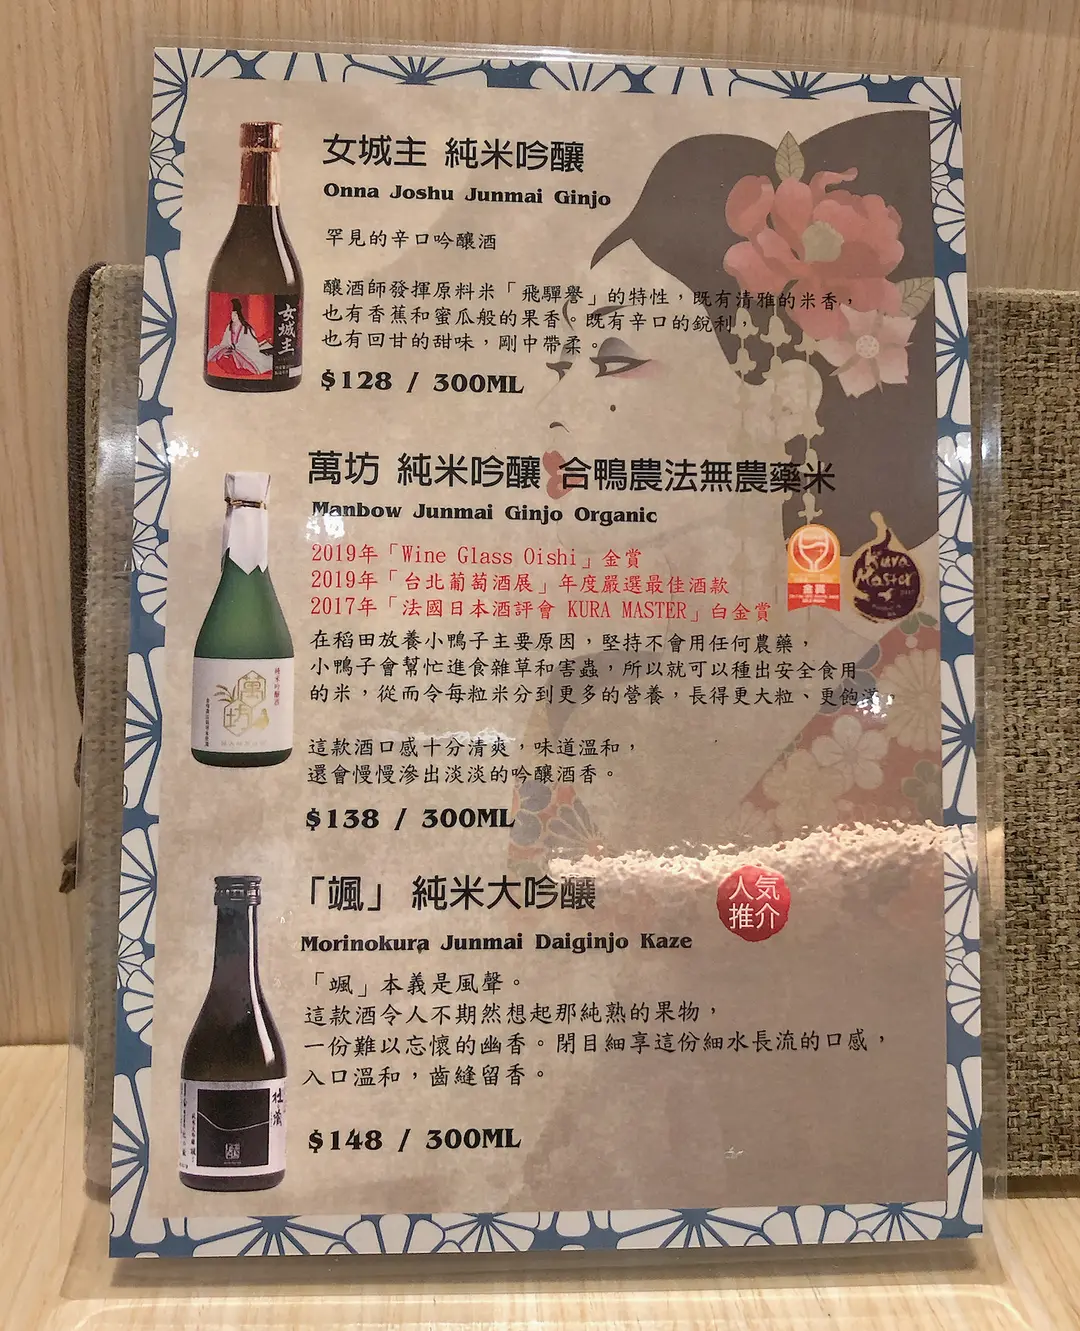 女城主 純米吟釀
Onna Joshu Junmai Ginjo
罕見的辛口吟釀酒
釀酒師發揮原料米「飛驒譽」的特性，既有清雅的米香，
也有香蕉和蜜瓜般的果香。既有辛口的銳利，
也有回甘的甜味，剛中帶柔。
$128 / 300ML
女城主
萬坊 純米吟釀 合鴨農法無農藥米
Manbow Junmai Ginjo Organic
2019年「Wine Glass Oishi」金賞
2019年「台北葡萄酒展」年度嚴選最佳酒款
2017年「法國日本酒評會 KURA MASTER」白金賞
金賞
Kura
Master
2017
在稻田放養小鴨子主要原因，堅持不會用任何農藥，
小鴨子會幫忙進食雜草和害蟲，所以就可以種出安全食用
的米，從而令每粒米分到更多的營養，長得更大粒、更飽滿。
這款酒口感十分清爽，味道溫和，
還會慢慢滲出淡淡的吟釀酒香。
$138 / 300ML
純米吟釀酒
萬坊
「颯」 純米大吟釀
人気
推介
Morinokura Junmai Daiginjo Kaze
「颯」本義是風聲。
這款酒令人不期然想起那純熟的果物，
一份難以忘懷的幽香。閉目細享這份細水長流的口感，
入口溫和，齒縫留香。
$148 / 300ML